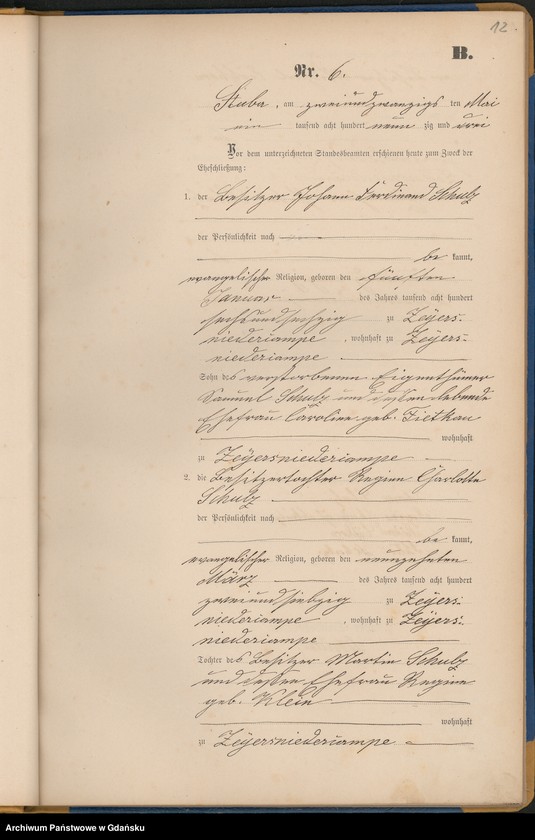 12.
B.
Nr. 6.
Stuba, am zweiundzwanzigs ten Mai
ein tausend acht hundert neun zig und drei
Vor dem unterzeichneten Standesbeamten erschienen heute zum Zweck der
Eheschließung:
1. der Besitzer Johann Ferdinand Schulz
der Persönlichkeit nach
be kannt,
evangelischer Religion, geboren den fünften
Januar des Jahres tausend acht hundert
sechsundsechzig zu Zeyers-
niederkampe, wohnhaft zu Zeyers-
niederkampe
Sohn des verstorbenen Eigenthümer
Samuel Schulz und dessen lebende
Ehefrau Caroline geb. Fietkau
wohnhaft
zu Zeyersniederkampe
2. die Besitzertochter Regine Charlotte
Schulz
der Persönlichkeit nach
be kannt,
evangelischer Religion, geboren den neunzehnten
März des Jahres tausend acht hundert
zweiundsiebzig zu Zeyers-
niederkampe, wohnhaft zu Zeyers-
niederkampe
Tochter des Besitzer Martin Schulz
und dessen Ehefrau Regine
geb. Klein
wohnhaft
zu Zeyersniederkampe
Archiwum Państwowe w Gdańsku